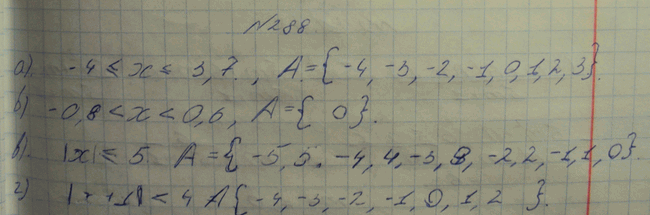 №288
а). -4 ≤ x ≤ 3,7., A={-4, -3, -2, -1, 0, 1, 2, 3}.
б) -0,8 < x < 0,6, A={ 0}.
в). |x| ≤ 5 A={-5, 5. -4, 4, -3, 3, -2, 2, -1, 1, 0}.
г) |x+1| < 4 A{-4, -3, -2, -1, 0, 1, 2 }.